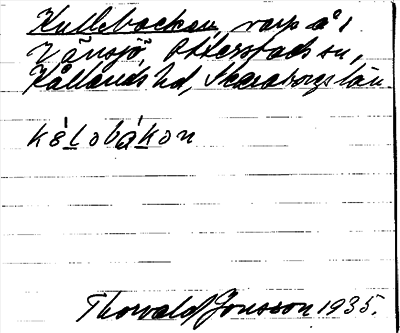 Kullebackan, varp å i
Vänsjö, Otterstads sn,
Kållands hd, Skaraborgs län
kélobákon
Thorvald Jonsson 1935.